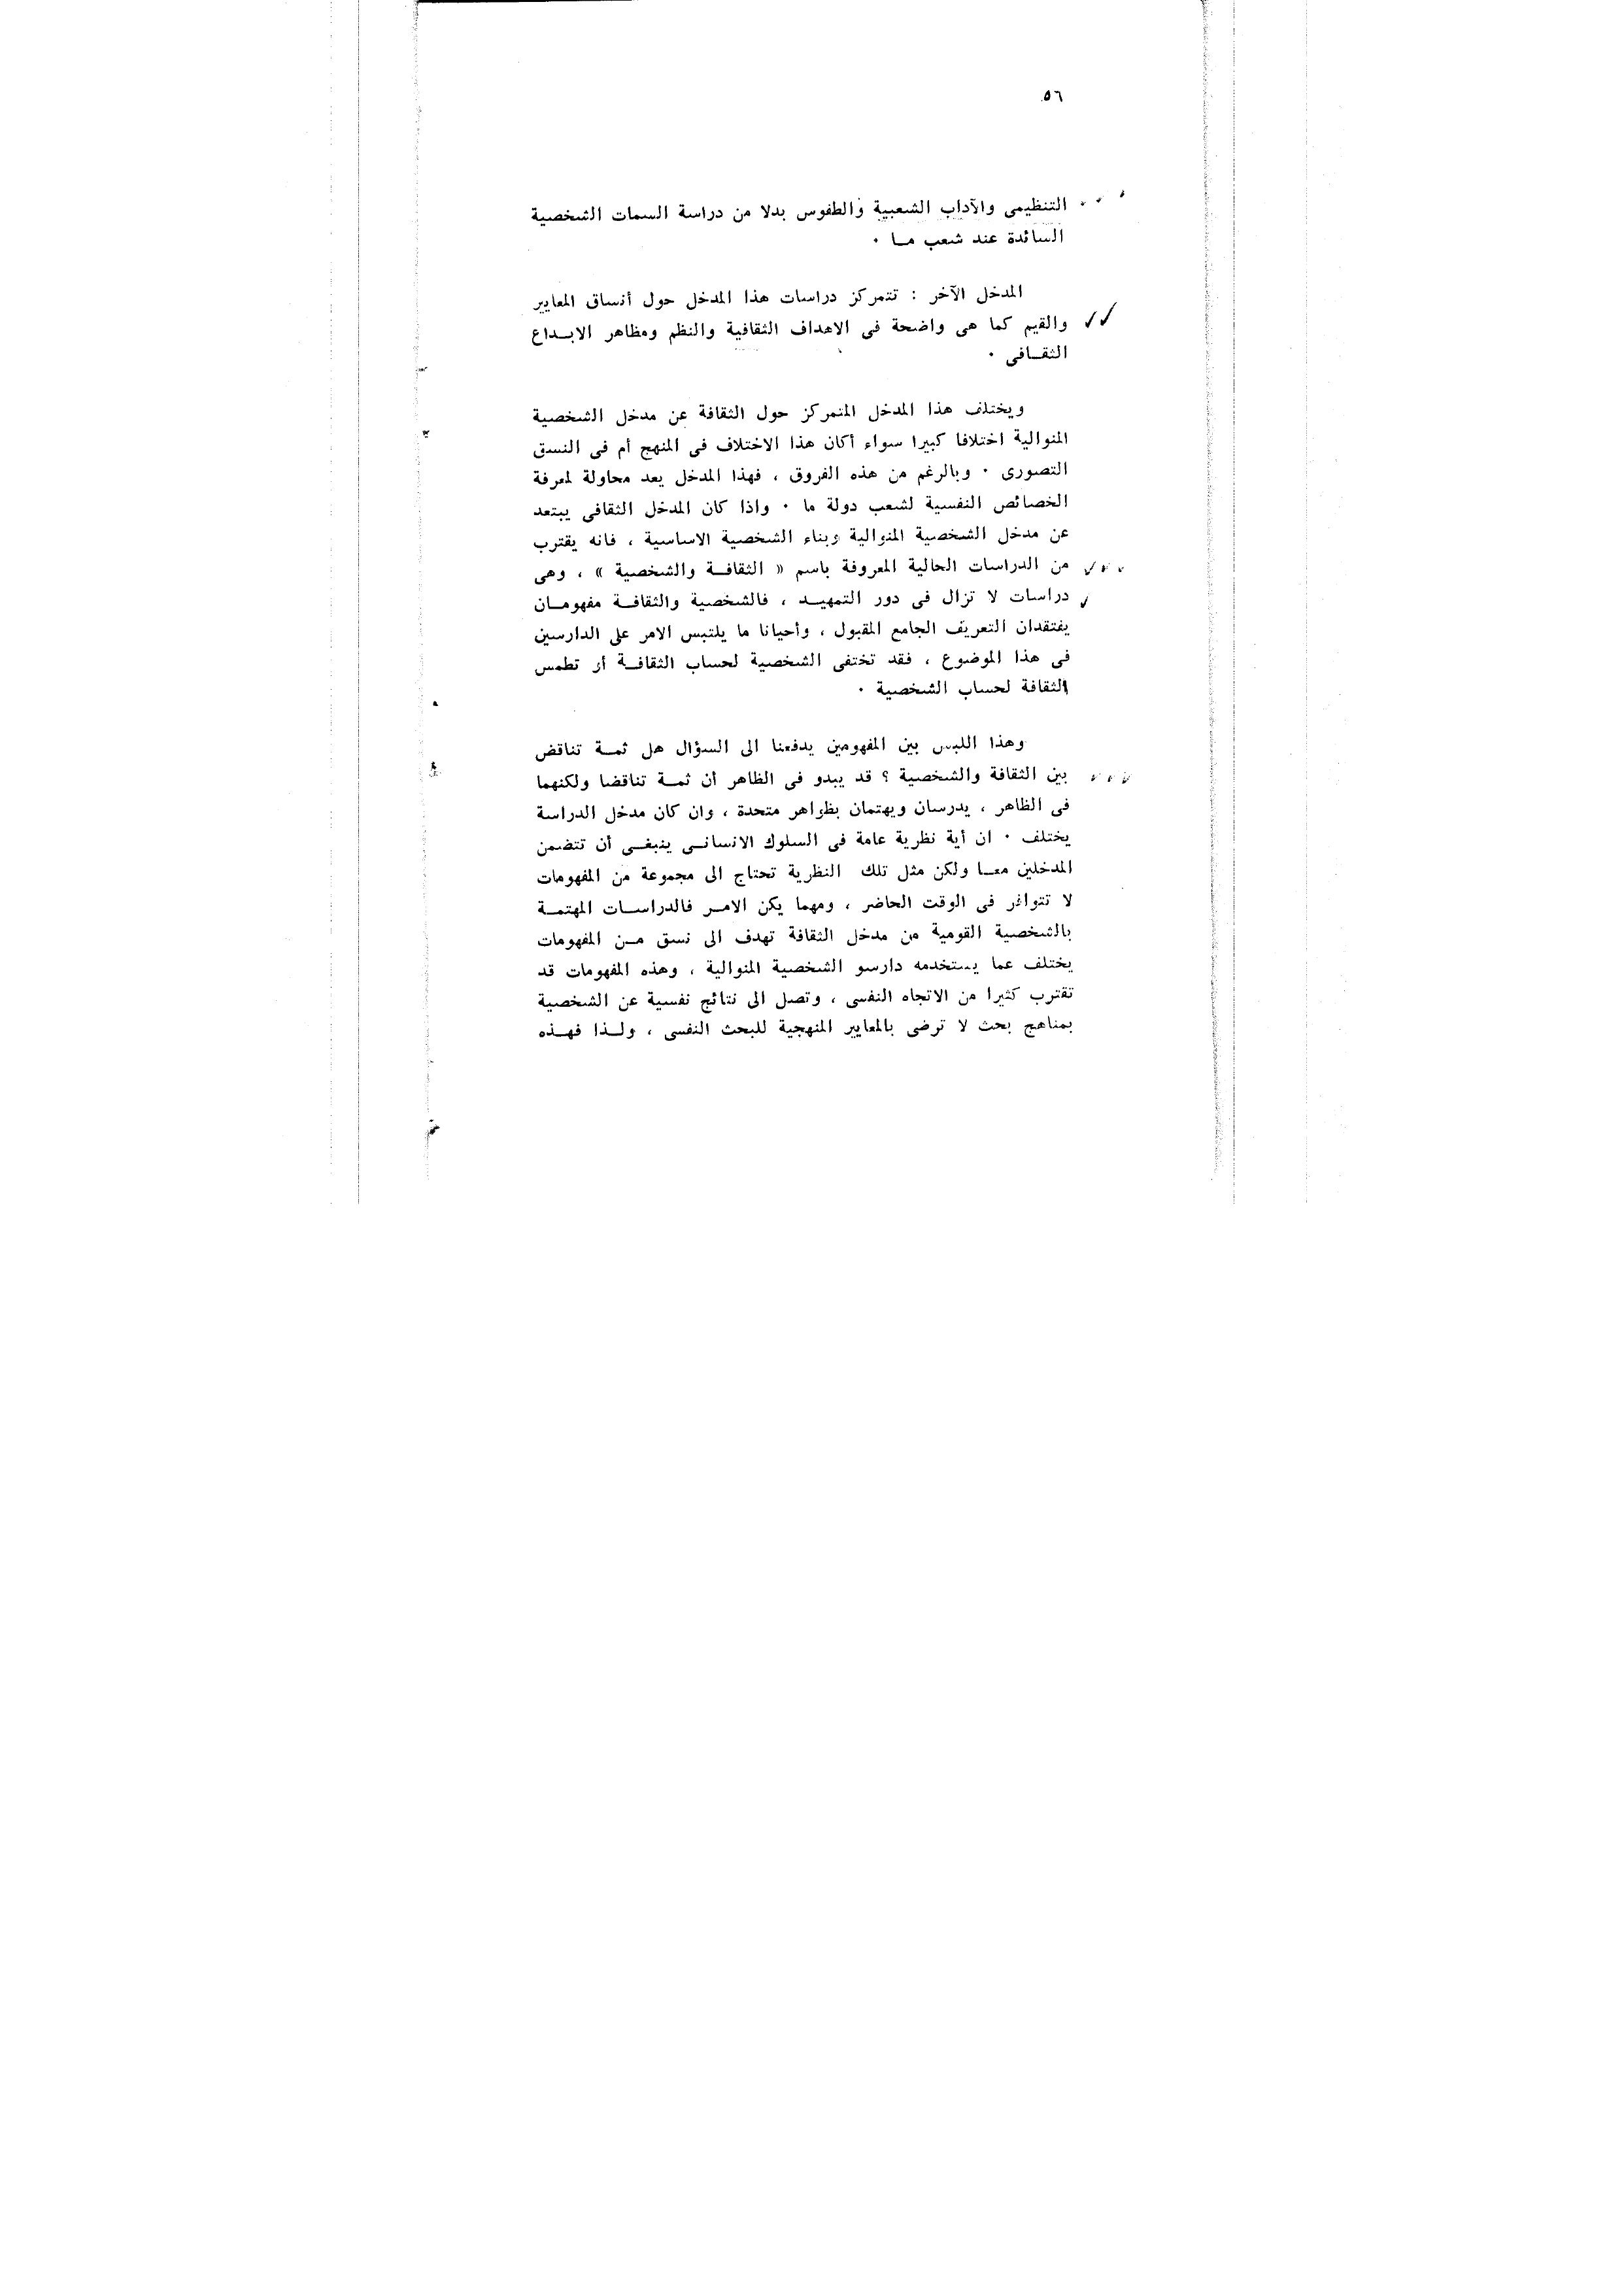 ٥٦
التنظيمى والآداب الشعبية والطفوس بدلا من دراسة السمات الشخصية
السائدة عند شعب مـا ٠
المدخل الآخر : تتمركز دراسات هذا المدخل حول أنساق المعايير
والقيم كما هى واضحة فى الاهداف الثقافية والنظم ومظاهر الابـداع
الثقـافى ٠
ويختلف هذا المدخل المتمركز حول الثقافة عن مدخل الشخصية
المنوالية اختلافا كبيرا سواء أكان هذا الاختلاف فى المنهج أم فى النسق
التصورى ٠ وبالرغم من هذه الفروق ، فهذا المدخل يعد محاولة لمعرفة
الخصائص النفسية لشعب دولة ما ٠ واذا كان المدخل الثقافى يبتعد
عن مدخل الشخصية المنوالية وبناء الشخصية الاساسية ، فانه يقترب
من الدراسات الحالية المعروفة باسم « الثقافـة والشخصية » ، وهى
دراسات لا تزال فى دور التمهيـد ، فالشخصية والثقافـة مفهومـان
يفتقدان التعريف الجامع المقبول ، وأحيانا ما يلتبس الامر على الدارسين
فى هذا الموضوع ، فقد تختفى الشخصية لحساب الثقافـة أو تطمس
الثقافة لحساب الشخصية ٠
وهذا اللبس بين المفهومين يدفعنا الى السؤال هل ثمـة تناقض
بين الثقافة والشخصية ؟ قد يبدو فى الظاهر أن ثمـة تناقضا ولكنهما
فى الظاهر ، يدرسان ويهتمان بظواهر متحدة ، وان كان مدخل الدراسة
يختلف ٠ ان أية نظرية عامة فى السلوك الانسانـى ينبغـى أن تتضمن
المدخلين معـا ولكن مثل تلك النظرية تحتاج الى مجموعة من المفهومات
لا تتوافر فى الوقت الحاضر ، ومهما يكن الامـر فالدراسـات المهتمـة
بالشخصية القومية من مدخل الثقافة تهدف الى نسق مـن المفهومات
يختلف عما يستخدمه دارسو الشخصية المنوالية ، وهذه المفهومات قد
تقترب كثيرا من الاتجاه النفسى ، وتصل الى نتائج نفسية عن الشخصية
بمناهج بحث لا ترضى بالمعايير المنهجية للبحث النفسى ، ولـذا فهـذه